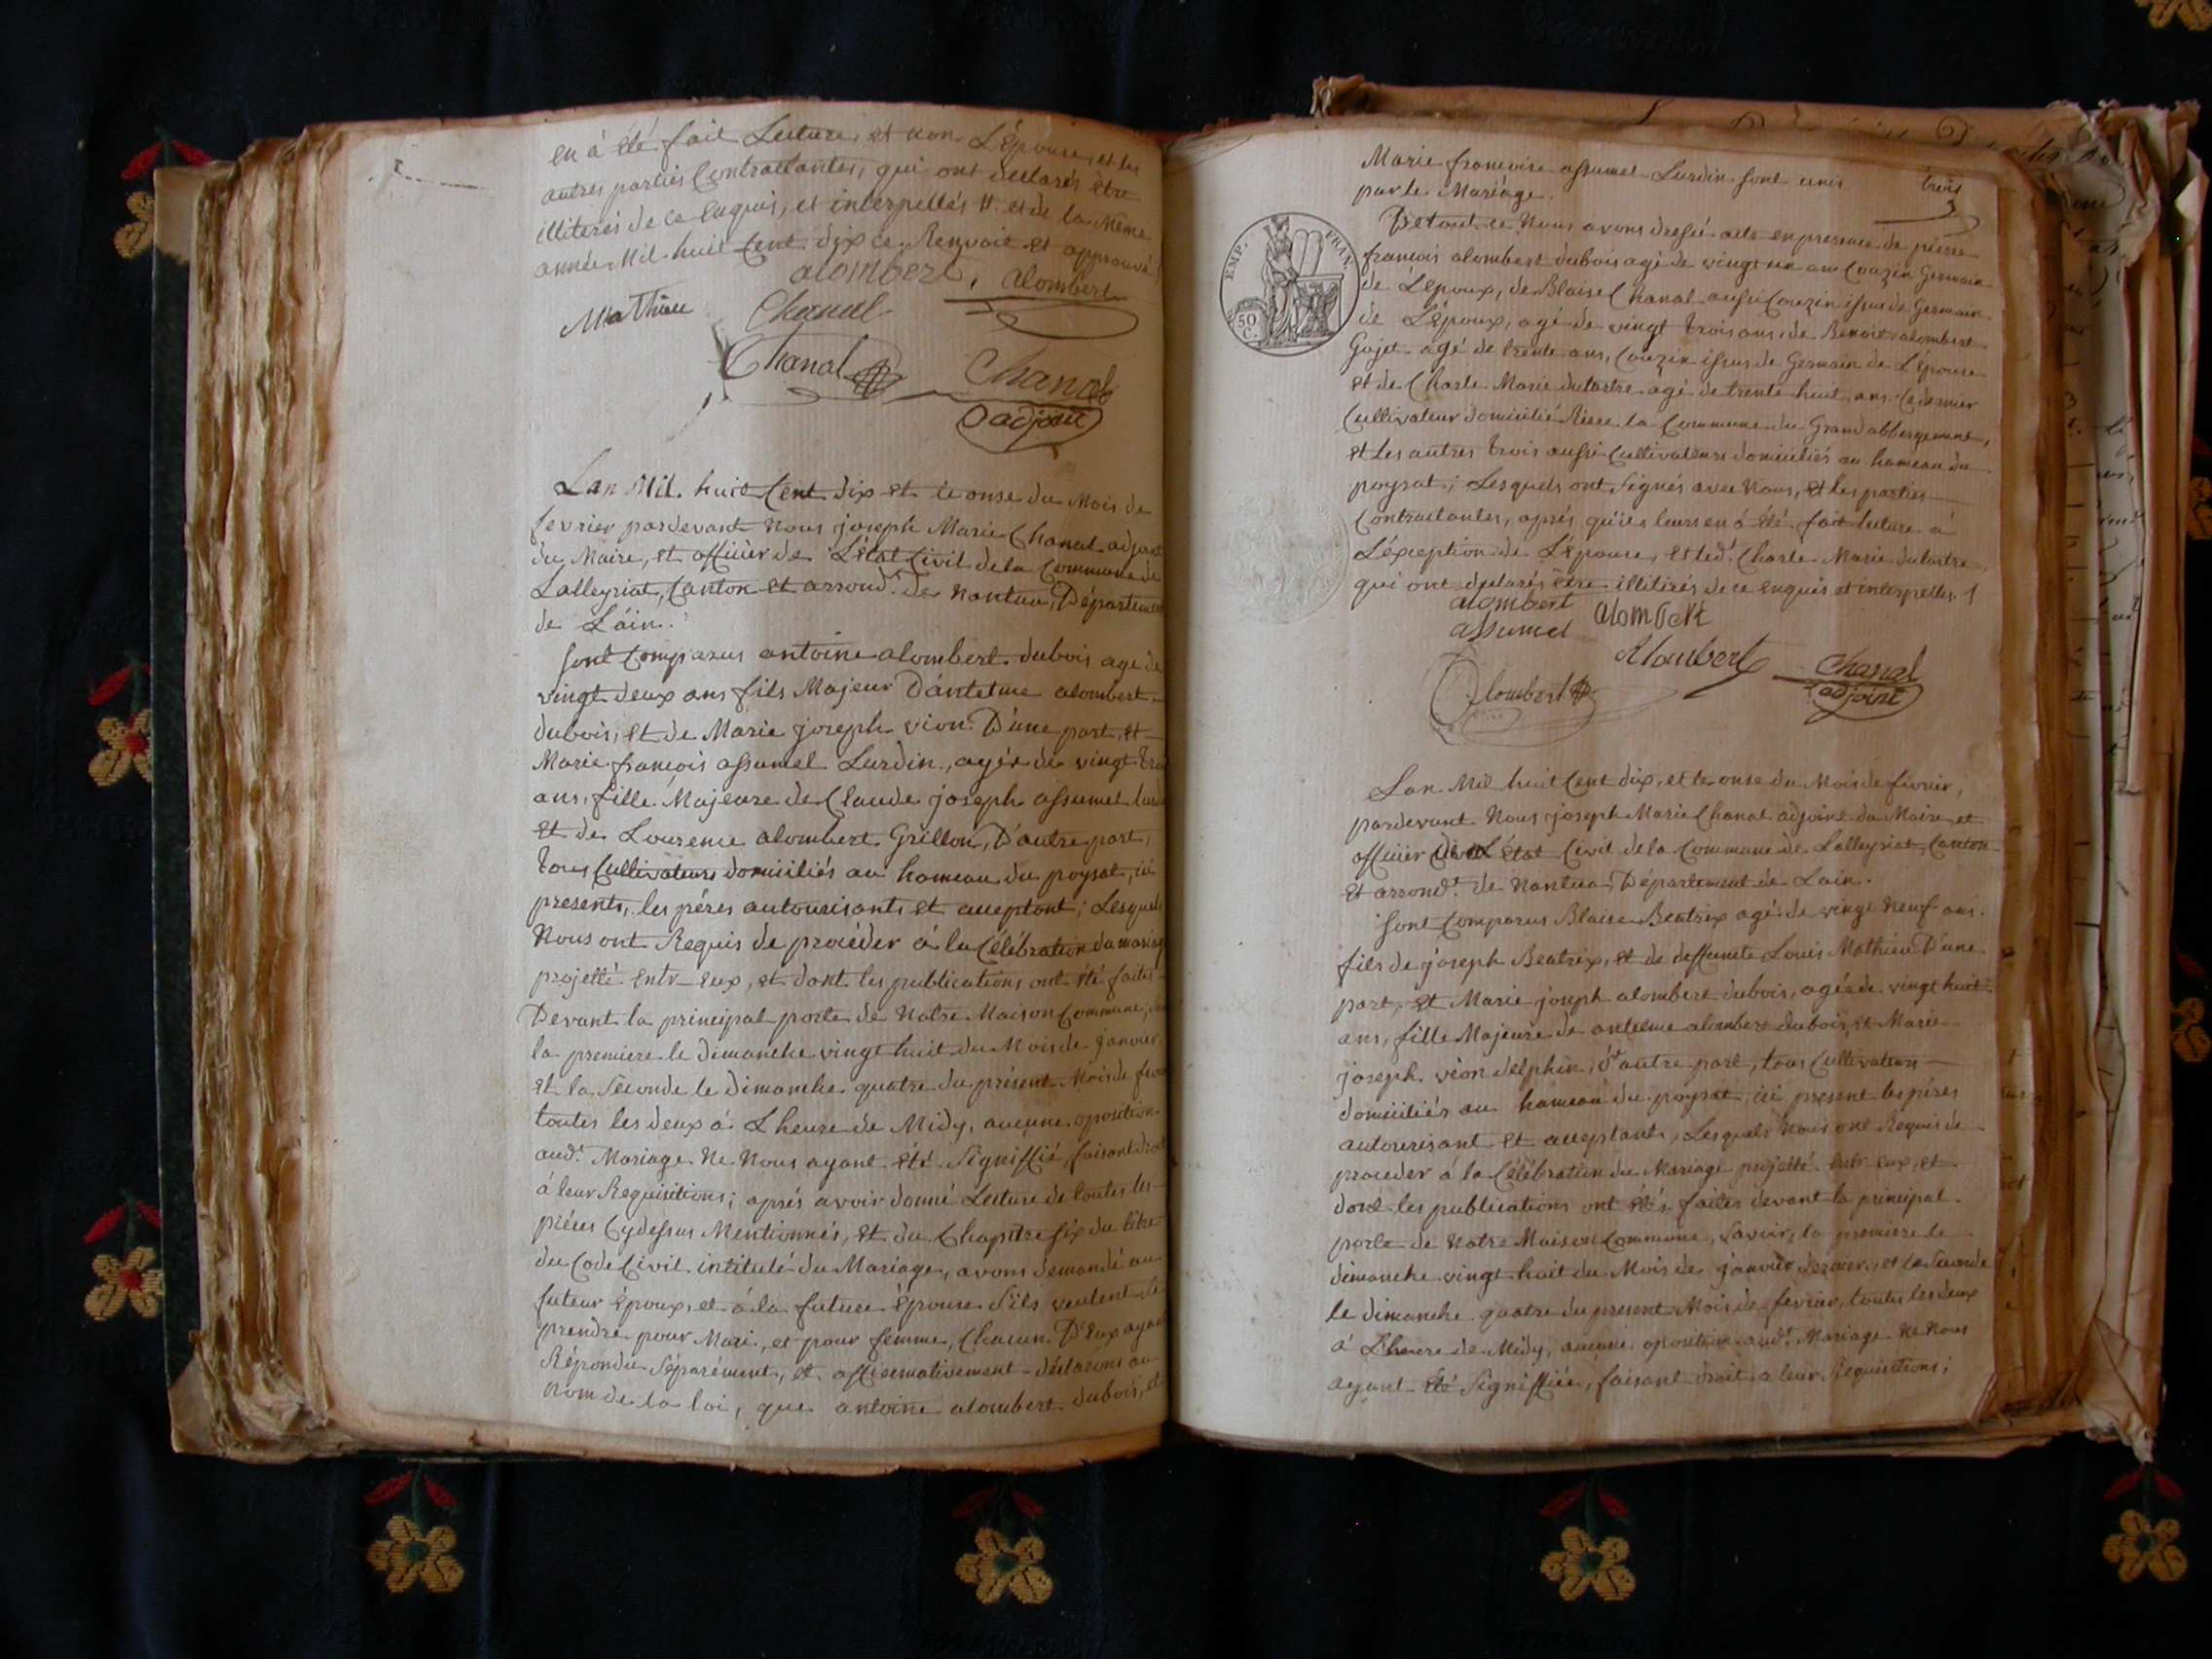 en à été fait Lecture, et non L'épouse, et les
autres parties Contractantes, qui ont declarés être
illiterés de ce enquis, et interpellés #. et de la Même
année Mil huit Cent dix ce Renvoit et approuvé
alombert, alombert
Mathieu Chanal
Chanal Chanal
adjoint
Lan Mil huit Cent dix et le onse du Mois de
fevrier pardevant Nous joseph Marie Chanal adjoint
du Maire, et officiér de L'état Civil de la Commune de
Lalleyriat, Canton et arrond.t de Nantua, Département
de Láin.
Sont Comparus antoine alombert dubois age de
vingt deux ans fils Majeur D'antelme alombert
dubois, et de Marie joseph vion D'une part, et
Marie françois assumel Lurdin, agée de vingt trois
ans, fille Majeure de Claude joseph assumel
et de Laurence alombert Grillon, D'autre part,
tous Cultivateurs domiciliés au hameau du poysat, ici
présents, les péres autourisants et acceptant; Lesquels
Nous ont Requis de procéder à la Célébration du mariage
projetté entr eux, et dont les publications ont été faites
Devant la principal porte de Notre Maison Commune,
la premiere le dimanche vingt huit du Mois de janvier
et la Seconde le dimanche quatre du présent Mois de
toutes les deux á L heure de Midy, aucune oposition
aud.t Mariage Ne Nous ayant été Signiffié, faisant droit
á leur Requisitions; aprés avoir donné Lecture de toutes les
piéces Cydessus Mentionnés, et du Chapitre six du titre
du Code Civil intitulé du Mariage, avons demandé au
futeur époux, et á la future épouse S'ils veulent Se
prendre pour Mari, et pour femme, Chacun D'eux ayant
Répondu Séparément, et affirmativement déclarons au
nom de la loi, que antoine alombert dubois, et
Marie francoise assumel Lurdin sont unis
par le Mariage.
trois
3
EMP. FRAN.
50 C.
De tout ce Nous avons dressé acte en presence de pierre
francois alombert dubois agé de vingt un ans Couzin Germain
de L'époux, de Blaise Chanal aussi Couzin issus de Germain
de L'époux, agé de vingt trois ans, de Benoit alombert
Gojet agé de trente ans, Couzin issus de Germain de L'épouse
et de Charle Marie dutartre agé de trente huit ans. Ce dernier
Cultivateur domicilié Riere la Commune du Grand abbergement,
et les autres trois aussi Cultivateurs domiciliés au hameau du
poysat; Lesquels ont Signés avec Nous, et les parties
Contractantes, aprés qu'ici leurs en á été fait lecture á
L'éxception de L'épouse, et led.t Charle Marie dutartre
qui ont declarés être illitirés de ce enquis et interpellés.
alombert alombert
assumel
Alombert Chanal
alombert adjoint
Lan Mil huit Cent dix, et le onse du Mois de fevrier,
pardevant Nous joseph Marie Chanal adjoint du Maire, et
officiér de L'état Civil de la Commune de Lalleyriat, Canton
et arrond.t de Nantua, Département de Lain.
Sont Comparus Blaise Beatrix agé de vingt Neuf ans
fils de joseph Beatrix, et de deffuncte Louis Mathieu D'une
part, et Marie joseph alombert dubois, agée de vingt huit
ans, fille Majeure de antelme alombert dubois, et Marie
joseph vion délphin, d'autre part, tous Cultivateurs
domiciliés au hameau du poysat, ici present les péres
autorisant et acceptants, Lesquels Nous ont Requis de
proceder a la Célébration du Mariage projetté entr eux, et
dont les publications ont étés faites devant la principal
porte de Notre Maison Commune, Savoir, la premiere le
dimanche vingt huit du Mois de janvier dernier, et la Seconde
le dimanche quatre du present Mois de fevrier, toutes les deux
á L'heure de Midy, aucune oposition aud.t Mariage Ne Nous
ayant été Signiffiée, faisant droit a leur Requisitions;